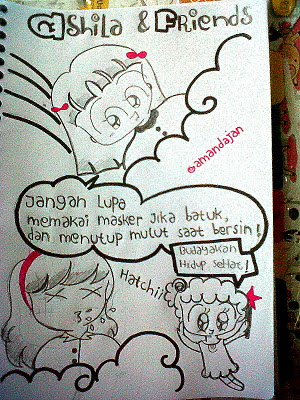 Ashila & Friends
@amandajan
Jangan lupa
memakai masker jika batuk,
dan menutup mulut saat bersin!
Budayakan
Hidup sehat!
Hatchii!